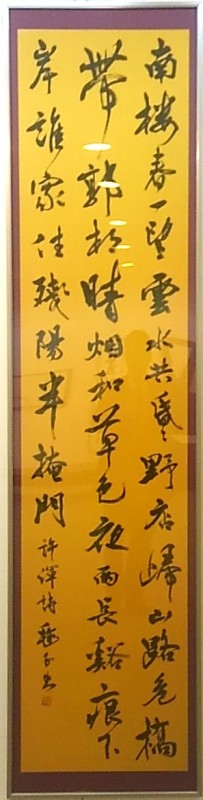 南楼春一望雲水共昏々野店歸山路危橋
帶郭村晴烟和草色夜雨長谿痕下
岸誰家住殘陽半掩門
許渾詩